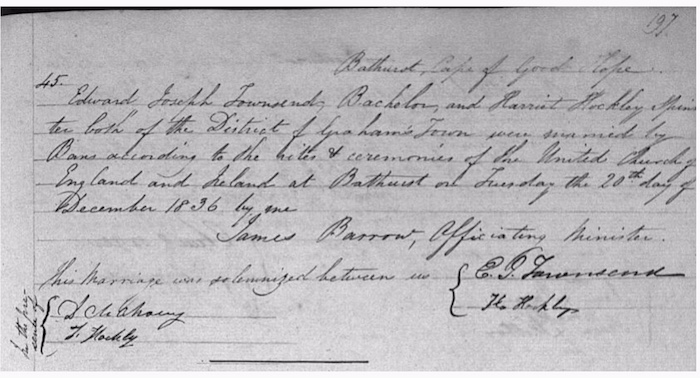 197.
Bathurst, Cape of Good Hope.
45.
Edward Joseph Townsend, Bachelor, and Harriet Hockley Spins
ter both of the District of Graham's Town were married by
Bans according to the rites & ceremonies of the United Church of
England and Ireland at Bathurst on Tuesday the 20th day of
December 1836 by me
James Barrow, Officiating Minister.
This Marriage was solemnized between us { E. J. Townsend
Hockley
In the pre-
sence of
{ D
Hockly